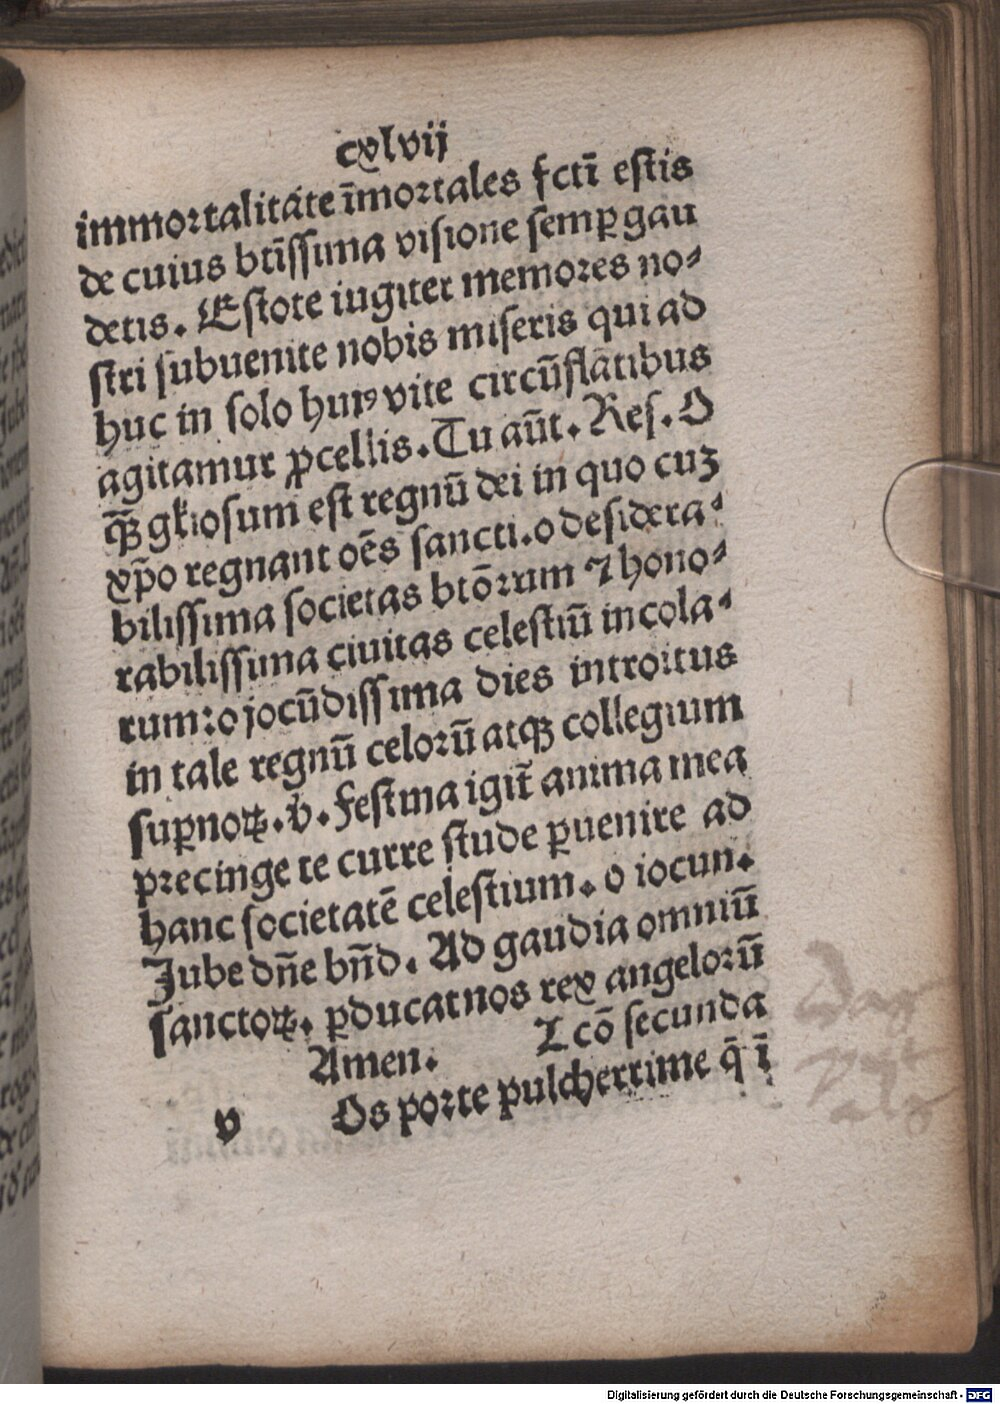 cxlvij
immortalitate īmortales fctī estis
de cuius btīssima visione semꝑ gau
detis. Estote iugiter memores no⸗
stri subuenite nobis miseris qui ad
huc in solo huiꝰ vite circūflātibus
agitamur ꝓcellis. Tu aūt. Res. O
qͣꝫ gl̄iosum est regnū dei in quo cuꝫ
xp̄o regnant oēs sancti. o desidera⸗
bilissima societas btōrum ⁊ hono⸗
rabilissima ciuitas celestiū incola⸗
rum: o jocūdissima dies introitus
in tale regnū celorū atqꝫ collegium
suꝑnoꝝ. v̓. Festina igit̄ anima mea
precinge te curre stude ꝑuenire ad
hanc societatē celestium. o iocun.
Jube dn̄e bn̄d. Ad gaudia omniū
sanctoꝝ. ꝑducat nos rex angelorū
Amen. Lcō secunda
v Os porte pulcherrime q̄ ī
Digitalisierung gefördert durch die Deutsche Forschungsgemeinschaft - DFG